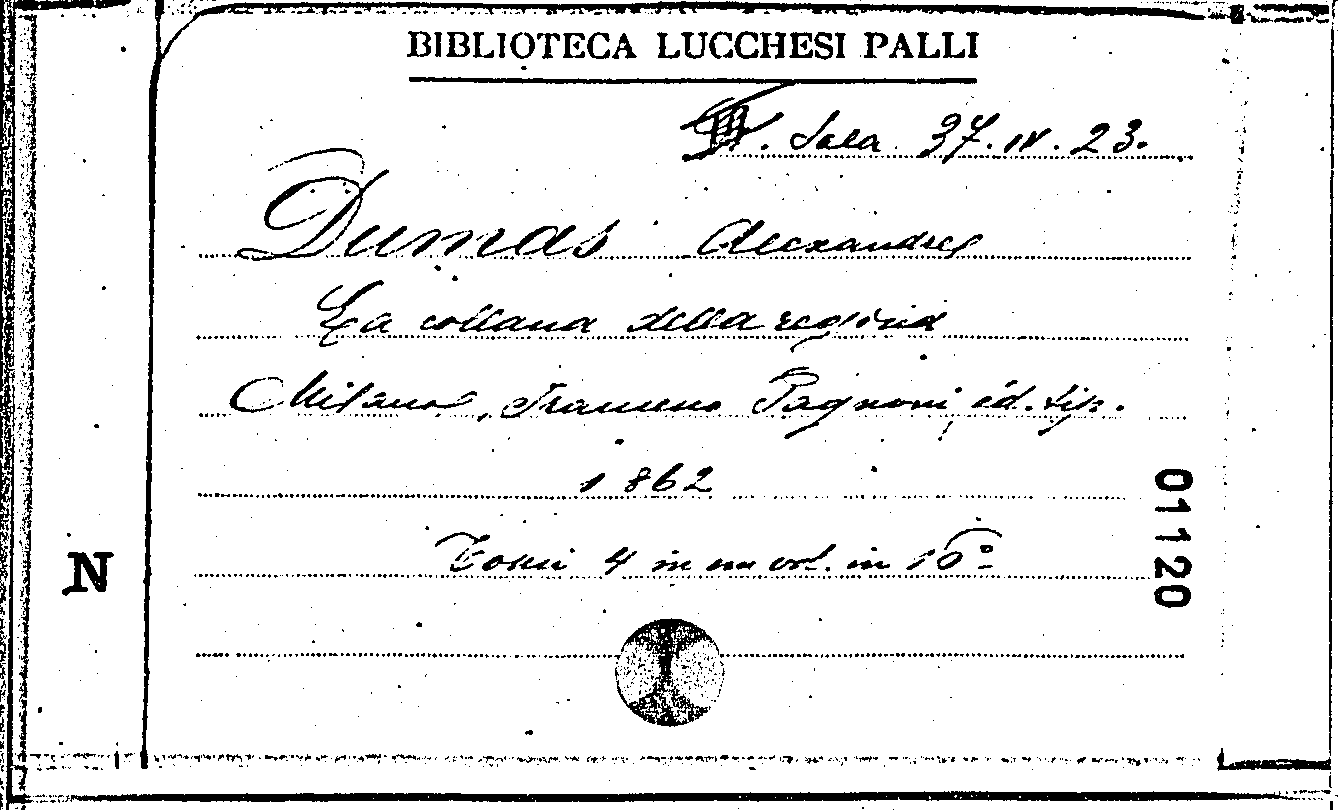 BIBLIOTECA LUCCHESI PALLI
. Sala 37. IV. 23.
Dumas Alexandre
La collana della regina
Milano, Francesco Pagnoni, ed. tip.
1862
Tomi 4 in un vol. in 16º
N
01120